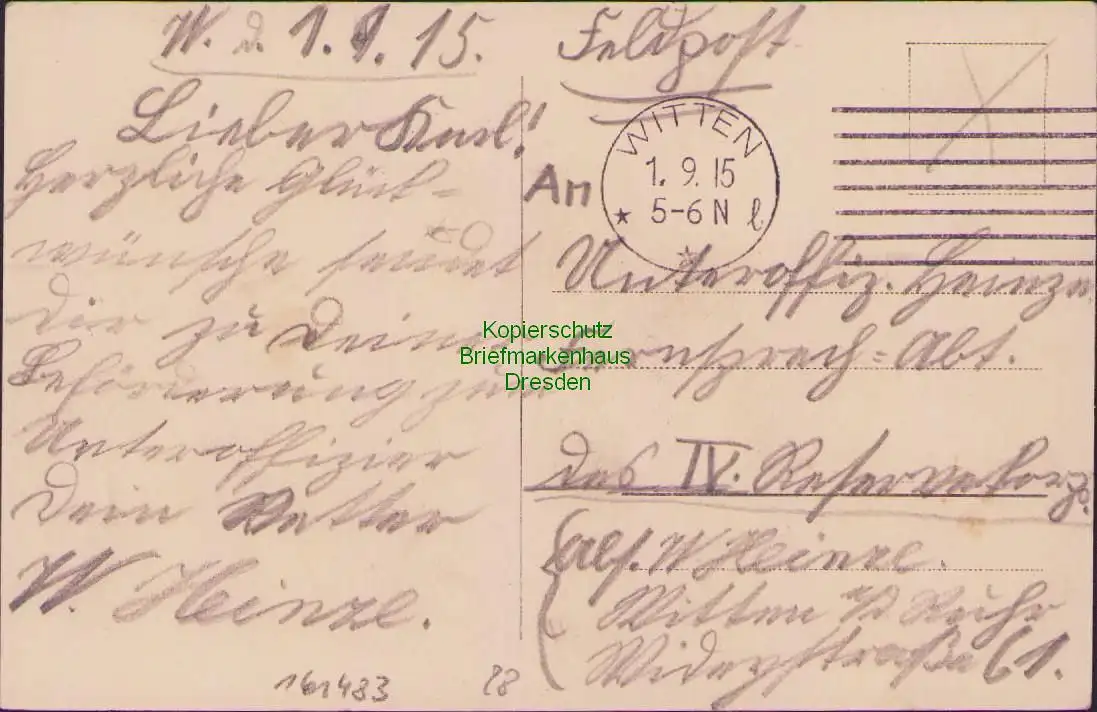 W. d. 1. 9. 15.
Lieber Karl!
Herzliche Glück-
wünsche sendet
Dir zu Deiner
Beförderung zum
Unteroffizier
Dein Vetter
W. Heinze.
161483 28
Feldpost
WITTEN
1. 9. 15
5-6 N l
An
Unteroffiz. Heinze
Fernsprech-Abt.
des IV. Reservekorps.
Abs. W Heinze.
Witten a/d Ruhr
61.
Kopierschutz
Briefmarkenhaus
Dresden